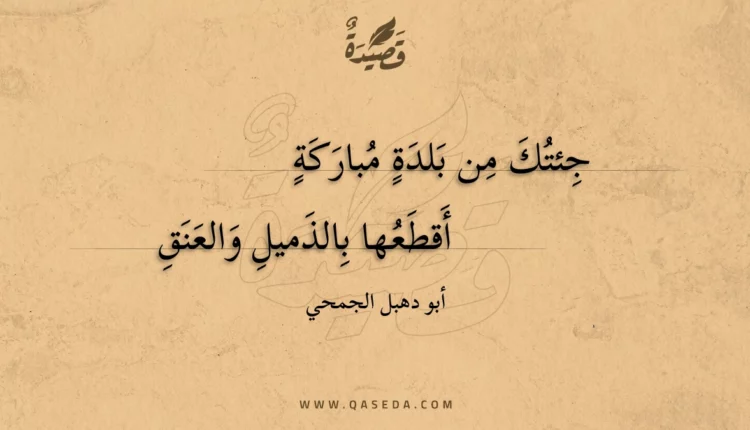 قَصِيْدَةٌ
جِئتُكَ مِن بَلدَةٍ مُبارَكَةٍ
أَقطَعُها بِالذَميلِ وَالعَنَقِ
أبو دهبل الجمحي
WWW.QASEDA.COM